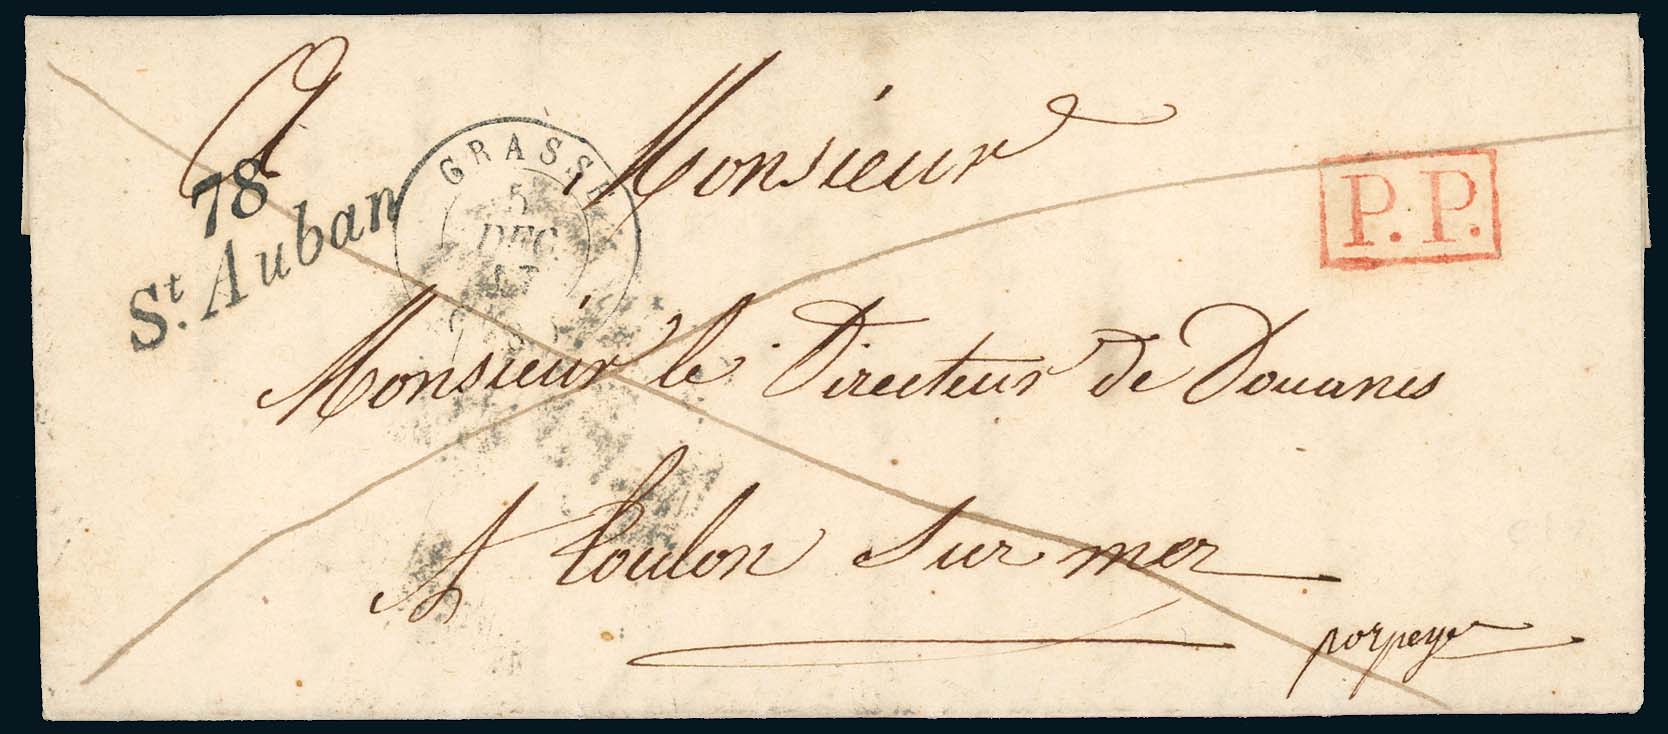 78
St. Auban
GRASSE
5
DEC.
47
Monsieur
P.P.
Monsieur le Directeur de Douanes
A toulon sur mer
porpeyé